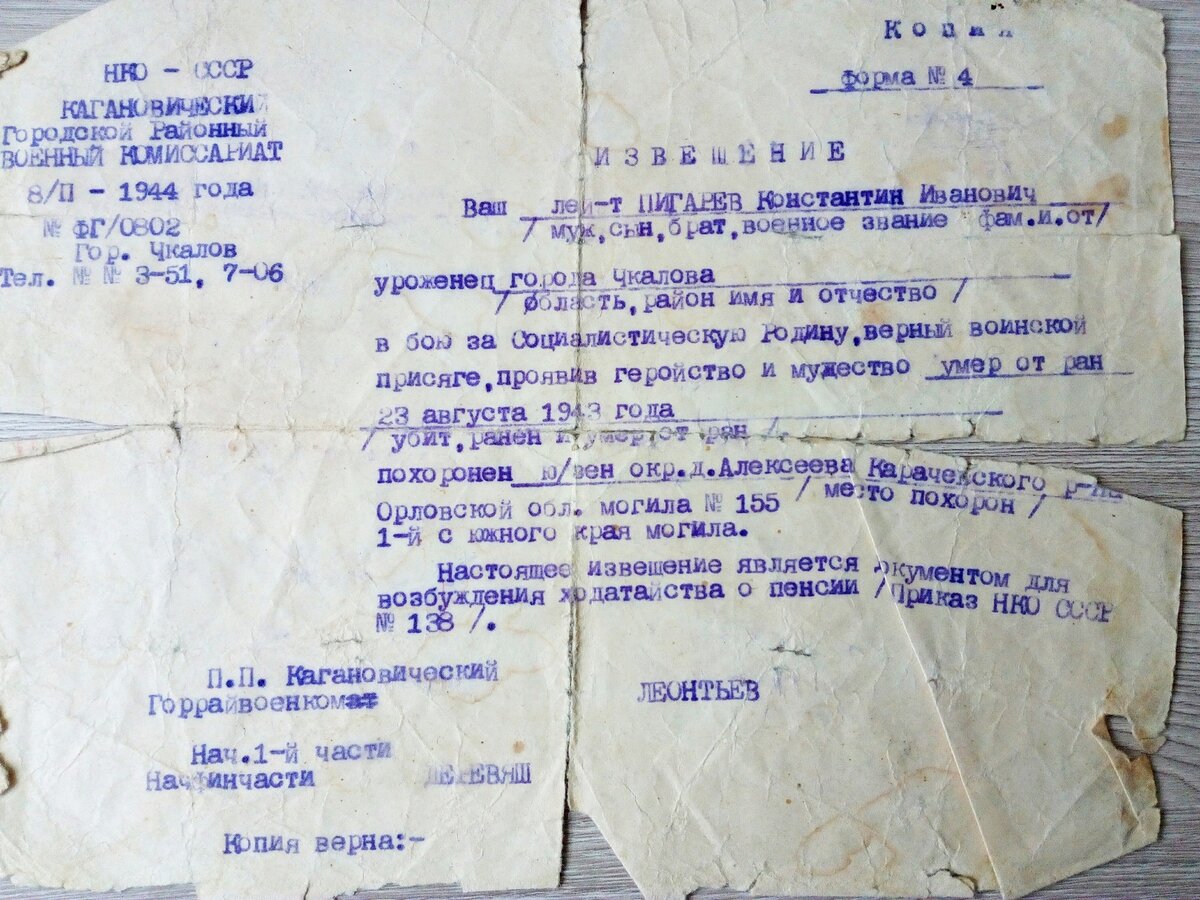 Копия
Форма № 4
НКО - СССР
КАГАНОВИЧЕСКИЙ
Городской Районный
ВОЕННЫЙ КОМИССАРИАТ
8/П - 1944 года
№ ФГ/0802
Гор. Чкалов
Тел. № № 3-51, 7-06
ИЗВЕШЕНИЕ
Ваш лей-т ПИГАРЕВ Константин Иванович
/ муж,сын,брат,военное звание фам.и.от/
уроженец города Чкалова
/ область,район имя и отчество /
в бою за Социалистическую Родину,верный воинской
присяге,проявив геройство и мужество умер от ран
23 августа 1943 года
/ убит,ранен и умер от ран /.
похоронен ю/зен окр.д.Алексеева Карачевского р-на
Орловской обл. могила № 155 / место похорон /
1-й с южного края могила.
Настоящее извещение является документом для
возбуждения ходатайства о пенсии /Приказ НКО СССР
№ 138 /.
П.П. Кагановический
Горрайвоенкомат
ЛЕОНТЬЕВ
Нач.1-й части
Начфинчасти ДЕРЕВЯШ
Копия верна:-